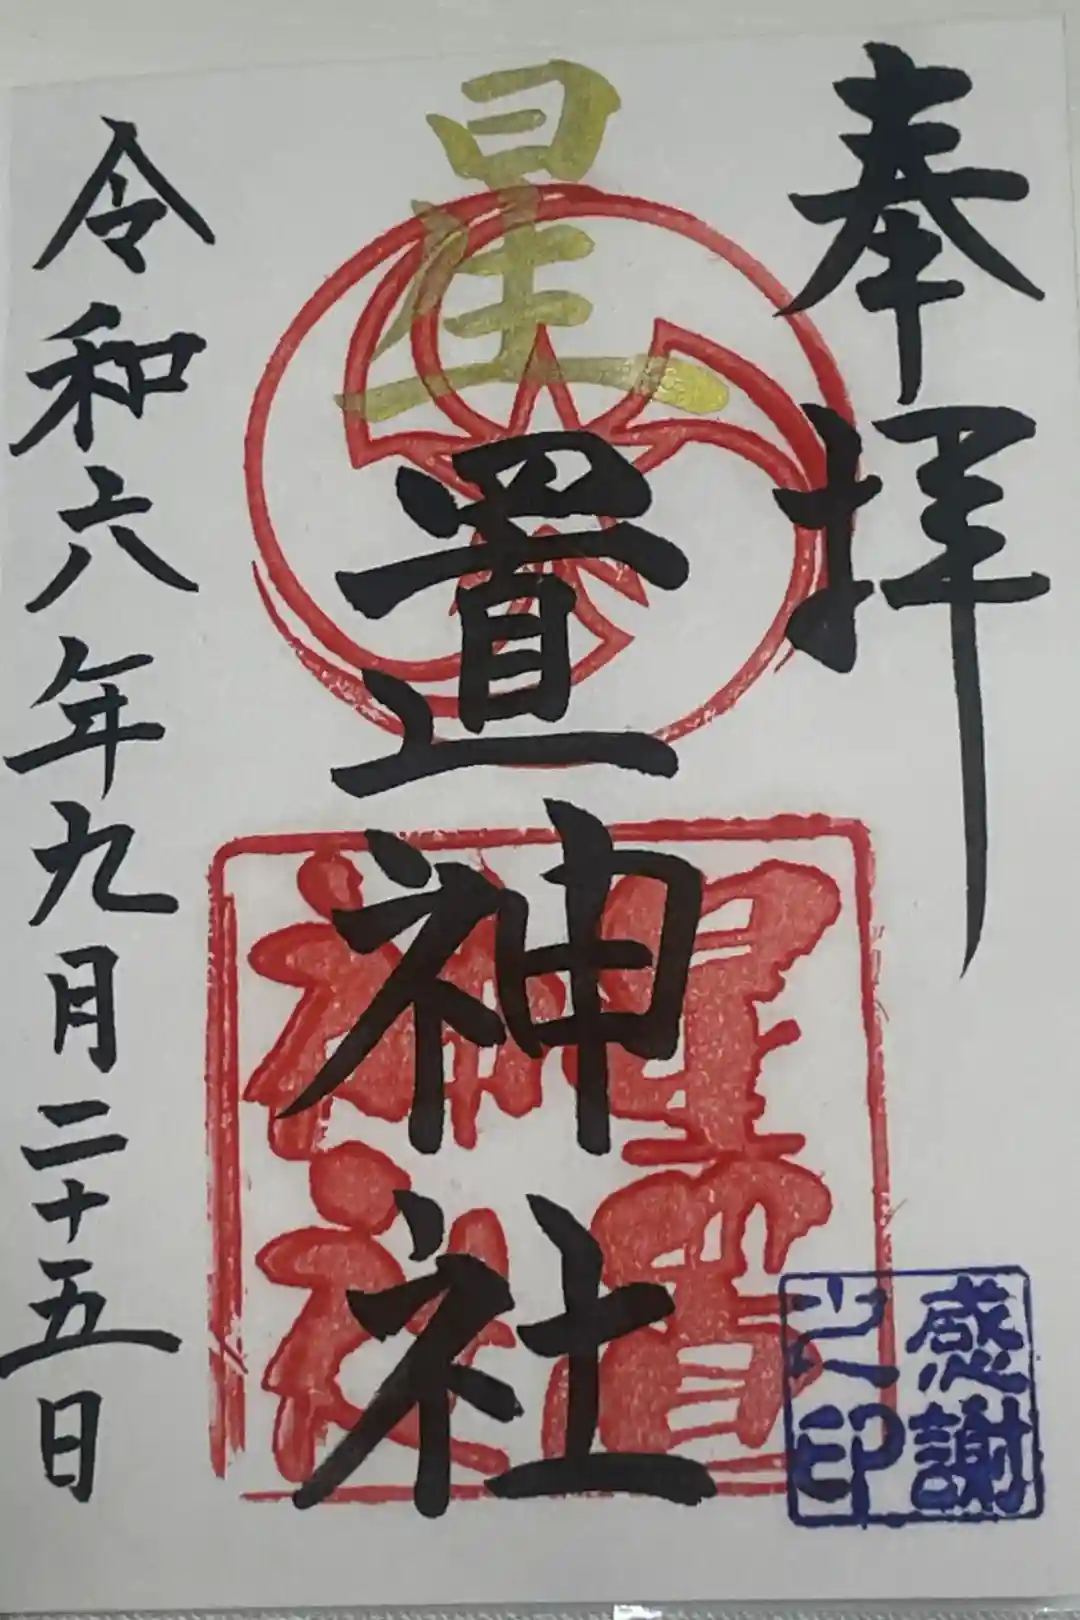 奉拝
星置神社
星置神社
感謝之印
令和六年九月二十五日